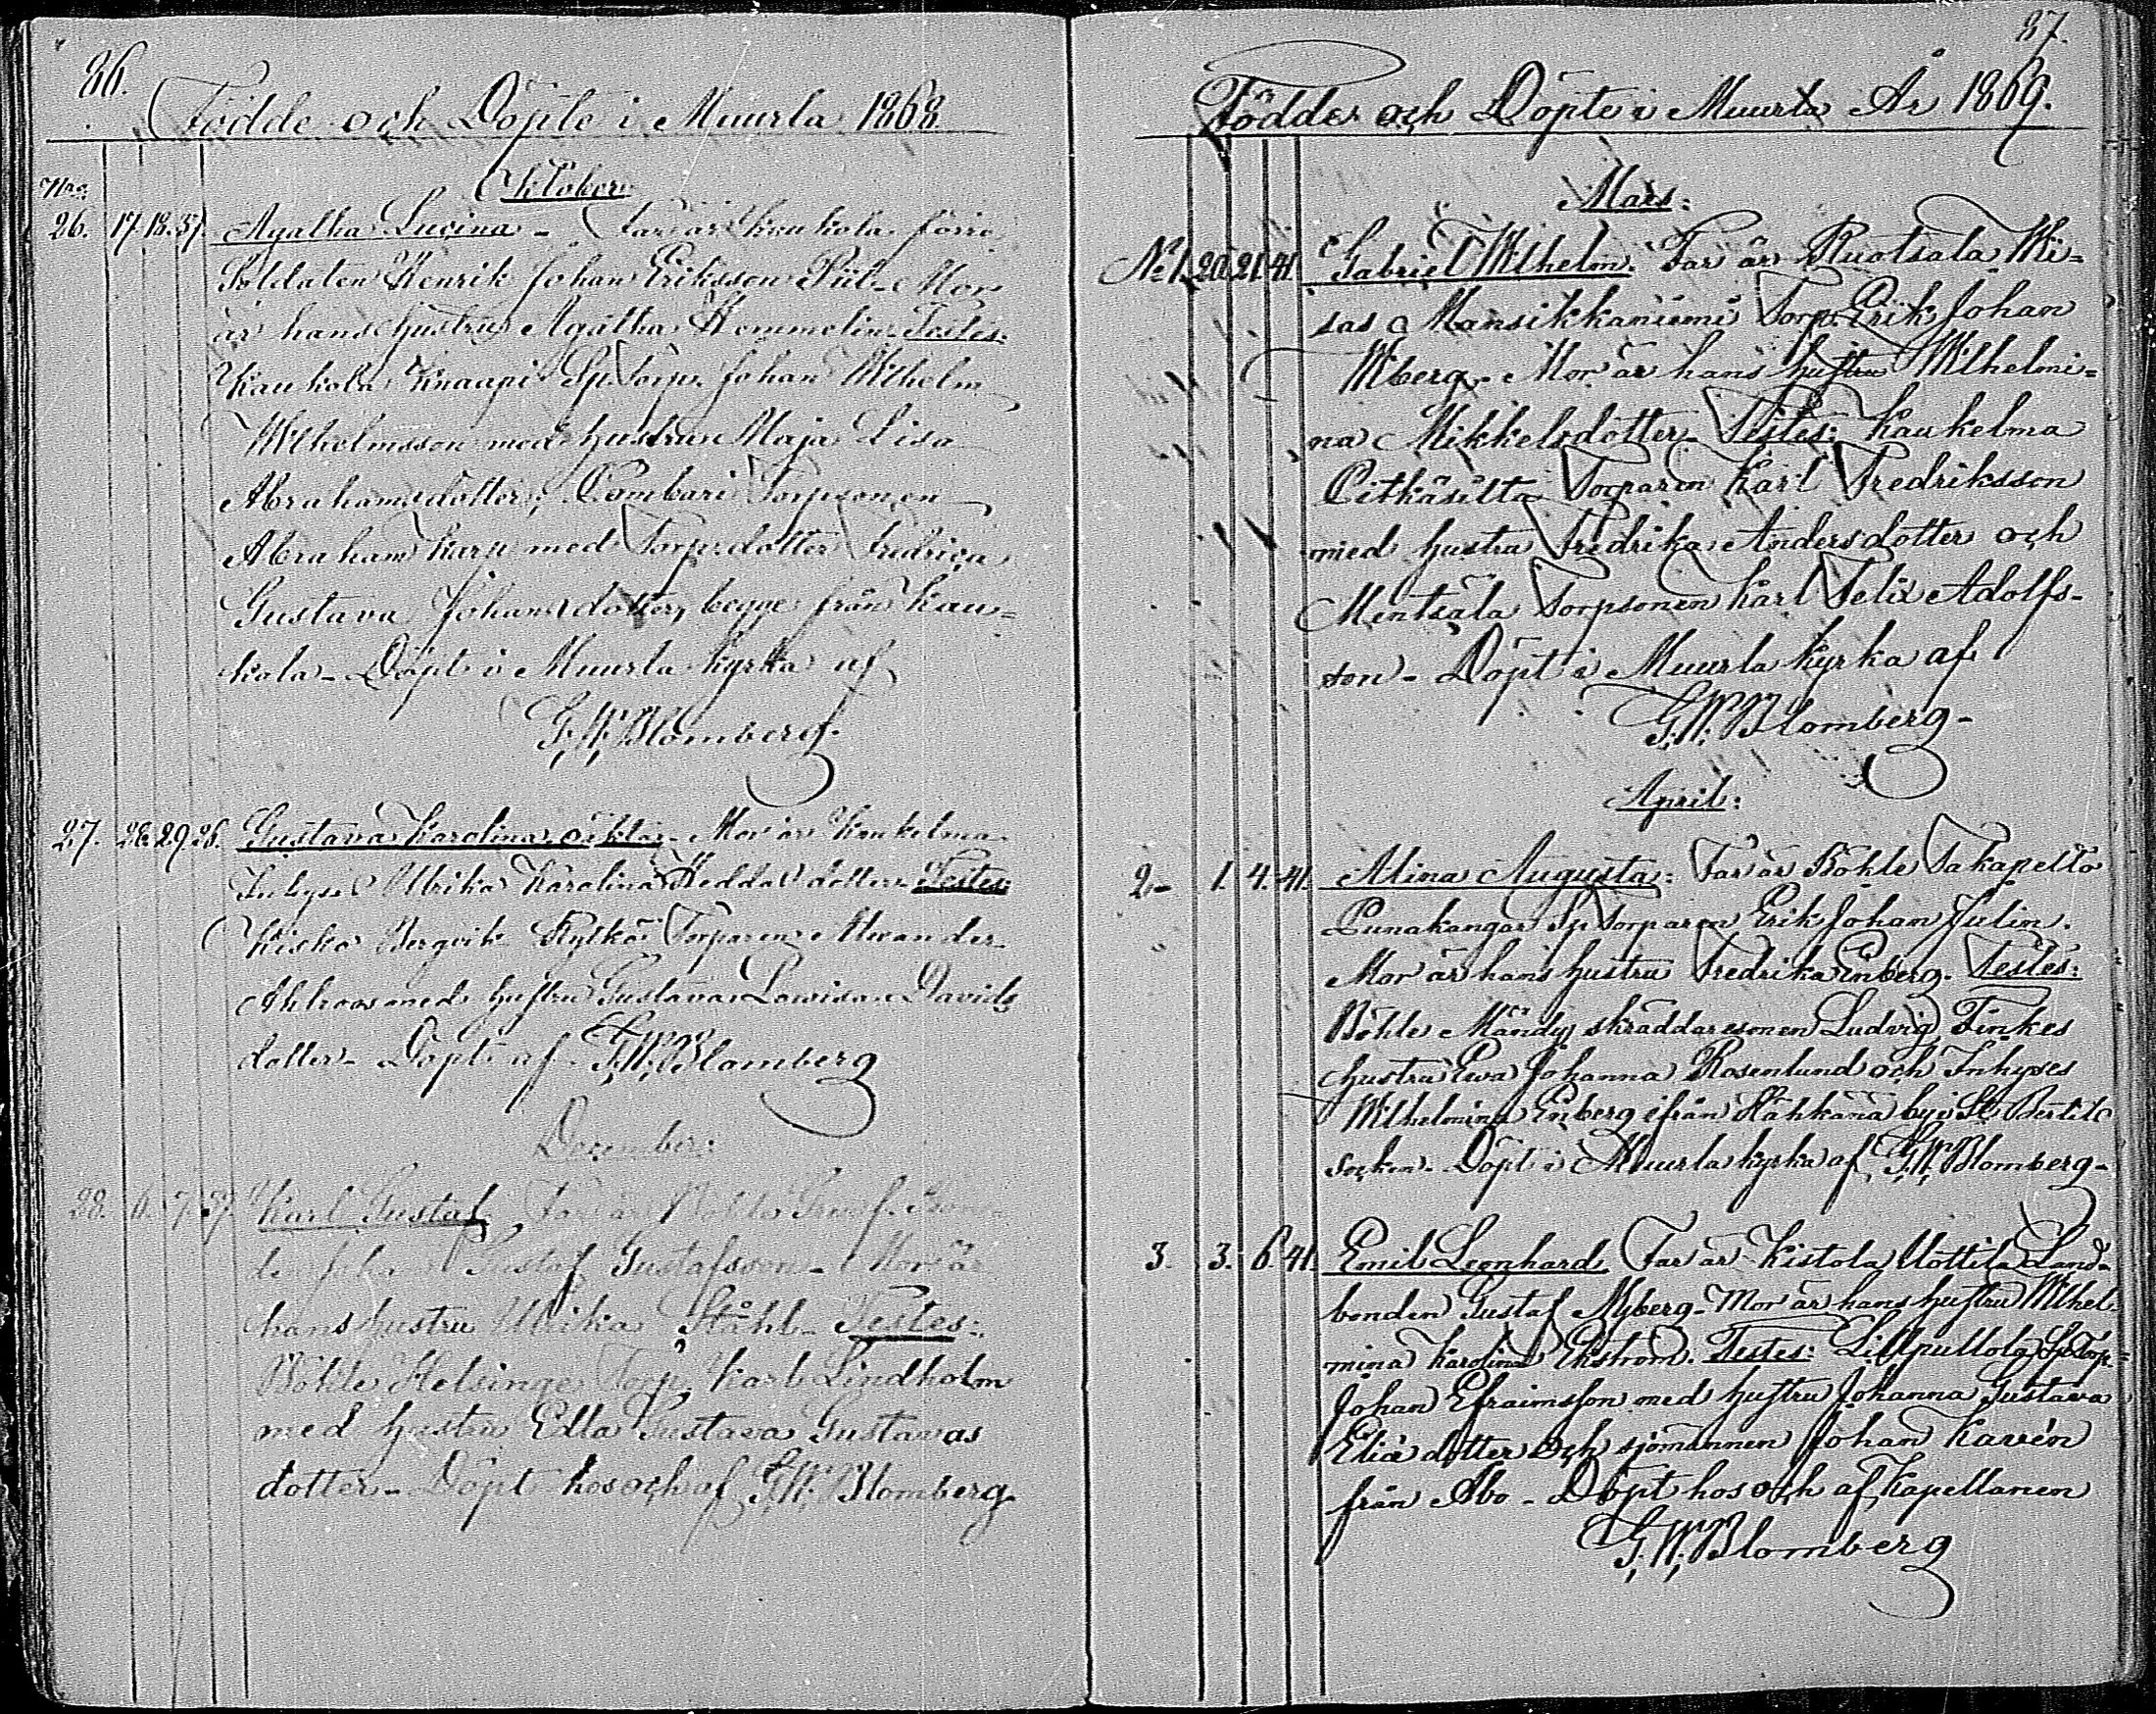 86.
Födde och Döpte i Muurla 1868.
Oktober
N:o
26. 17. 18. 37. Agatha Lucina - Far är Kaukola förre
Soldaten Henrik Johan Eriksson Piil - Mor
är hans hustru Agatha Hemmelin - Testes:
Kaukola Knaapi Sp. Torp. Johan Wilhelm
Wilhelmsson med hustrun Maja Lisa
Abrahamsdotter; Pombari Torpsonen
Abraham Karp med Torp.dotter Fredrica
Gustava Johansdotter, begge från Kau=
kola - Döpt i Muurla kyrka af
G.W. Blomberg.
27. 28. 29. 26. Gustava Karolina oäkta - Mor är Kaukelma
Inhyses Ulrika Karolina Heddas dotter - Testes:
Kisko Bergvik Kylkö Torparen Alexander
Ahlroos med hustru Gustava Lowisa Davids
dotter - Döpt af G.W. Blomberg
December:
28. 6. 7. 37. Karl Gustaf Far är Böhle
Johan Gustaf Gustafsson - Mor är
hans hustru Ulrika Ståhl - Testes:
Böhle Helsinge Torp. Karl Lindholm
med hustru Edla Gustava Gustavas
dotter - Döpt hos och af G.W. Blomberg
87.
Födde och Döpte i Muurla År 1869.
Mars:
No 1. 20. 21. 41. Gabriel Wilhelm. Far är Ruotsala Wi=
sas Mansikkaniemi Torp. Erik Johan
Wiberg. Mor är hans hustru Wilhelmi=
na Mikkelsdotter - Testes: Kaukelma
Pitkäsilta Torparen Karl Fredriksson
med hustru Fredrika Andersdotter och
Mentsälä Torpsonen Karl Felix Adolfs-
son - Döpt i Muurla kyrka af
G.W. Blomberg -
April:
2 - 1. 4. 41. Alina Augusta: Far är Böhle Takapelto
Punakangas Sp Torparen Erik Johan Julin.
Mor är hans hustru Fredrika Enberg. Testes:
Böhle Mändy skräddaresonen Ludvig Finkes
hustru Eva Johanna Rosenlund och Inhyses
Wilhelmina Enberg ifrån Hähkänä by i St Bertils
socken - Döpt i Muurla kyrka af G.W. Blomberg -
3. 3. 6. 41. Emil Leonhard. Far är Kistola Uottila Land=
bonden Gustaf Nyberg - Mor är hans hustru Wilhel-
mina Karolina Ekström. Testes: Lillpullola Sp Torp=
Johan Efraimsson med hustru Johanna Gustava
Eliæ dotter och sjömannen Johan Kavén
från Åbo - Döpt hos och af Kapellanen
G.W. Blomberg